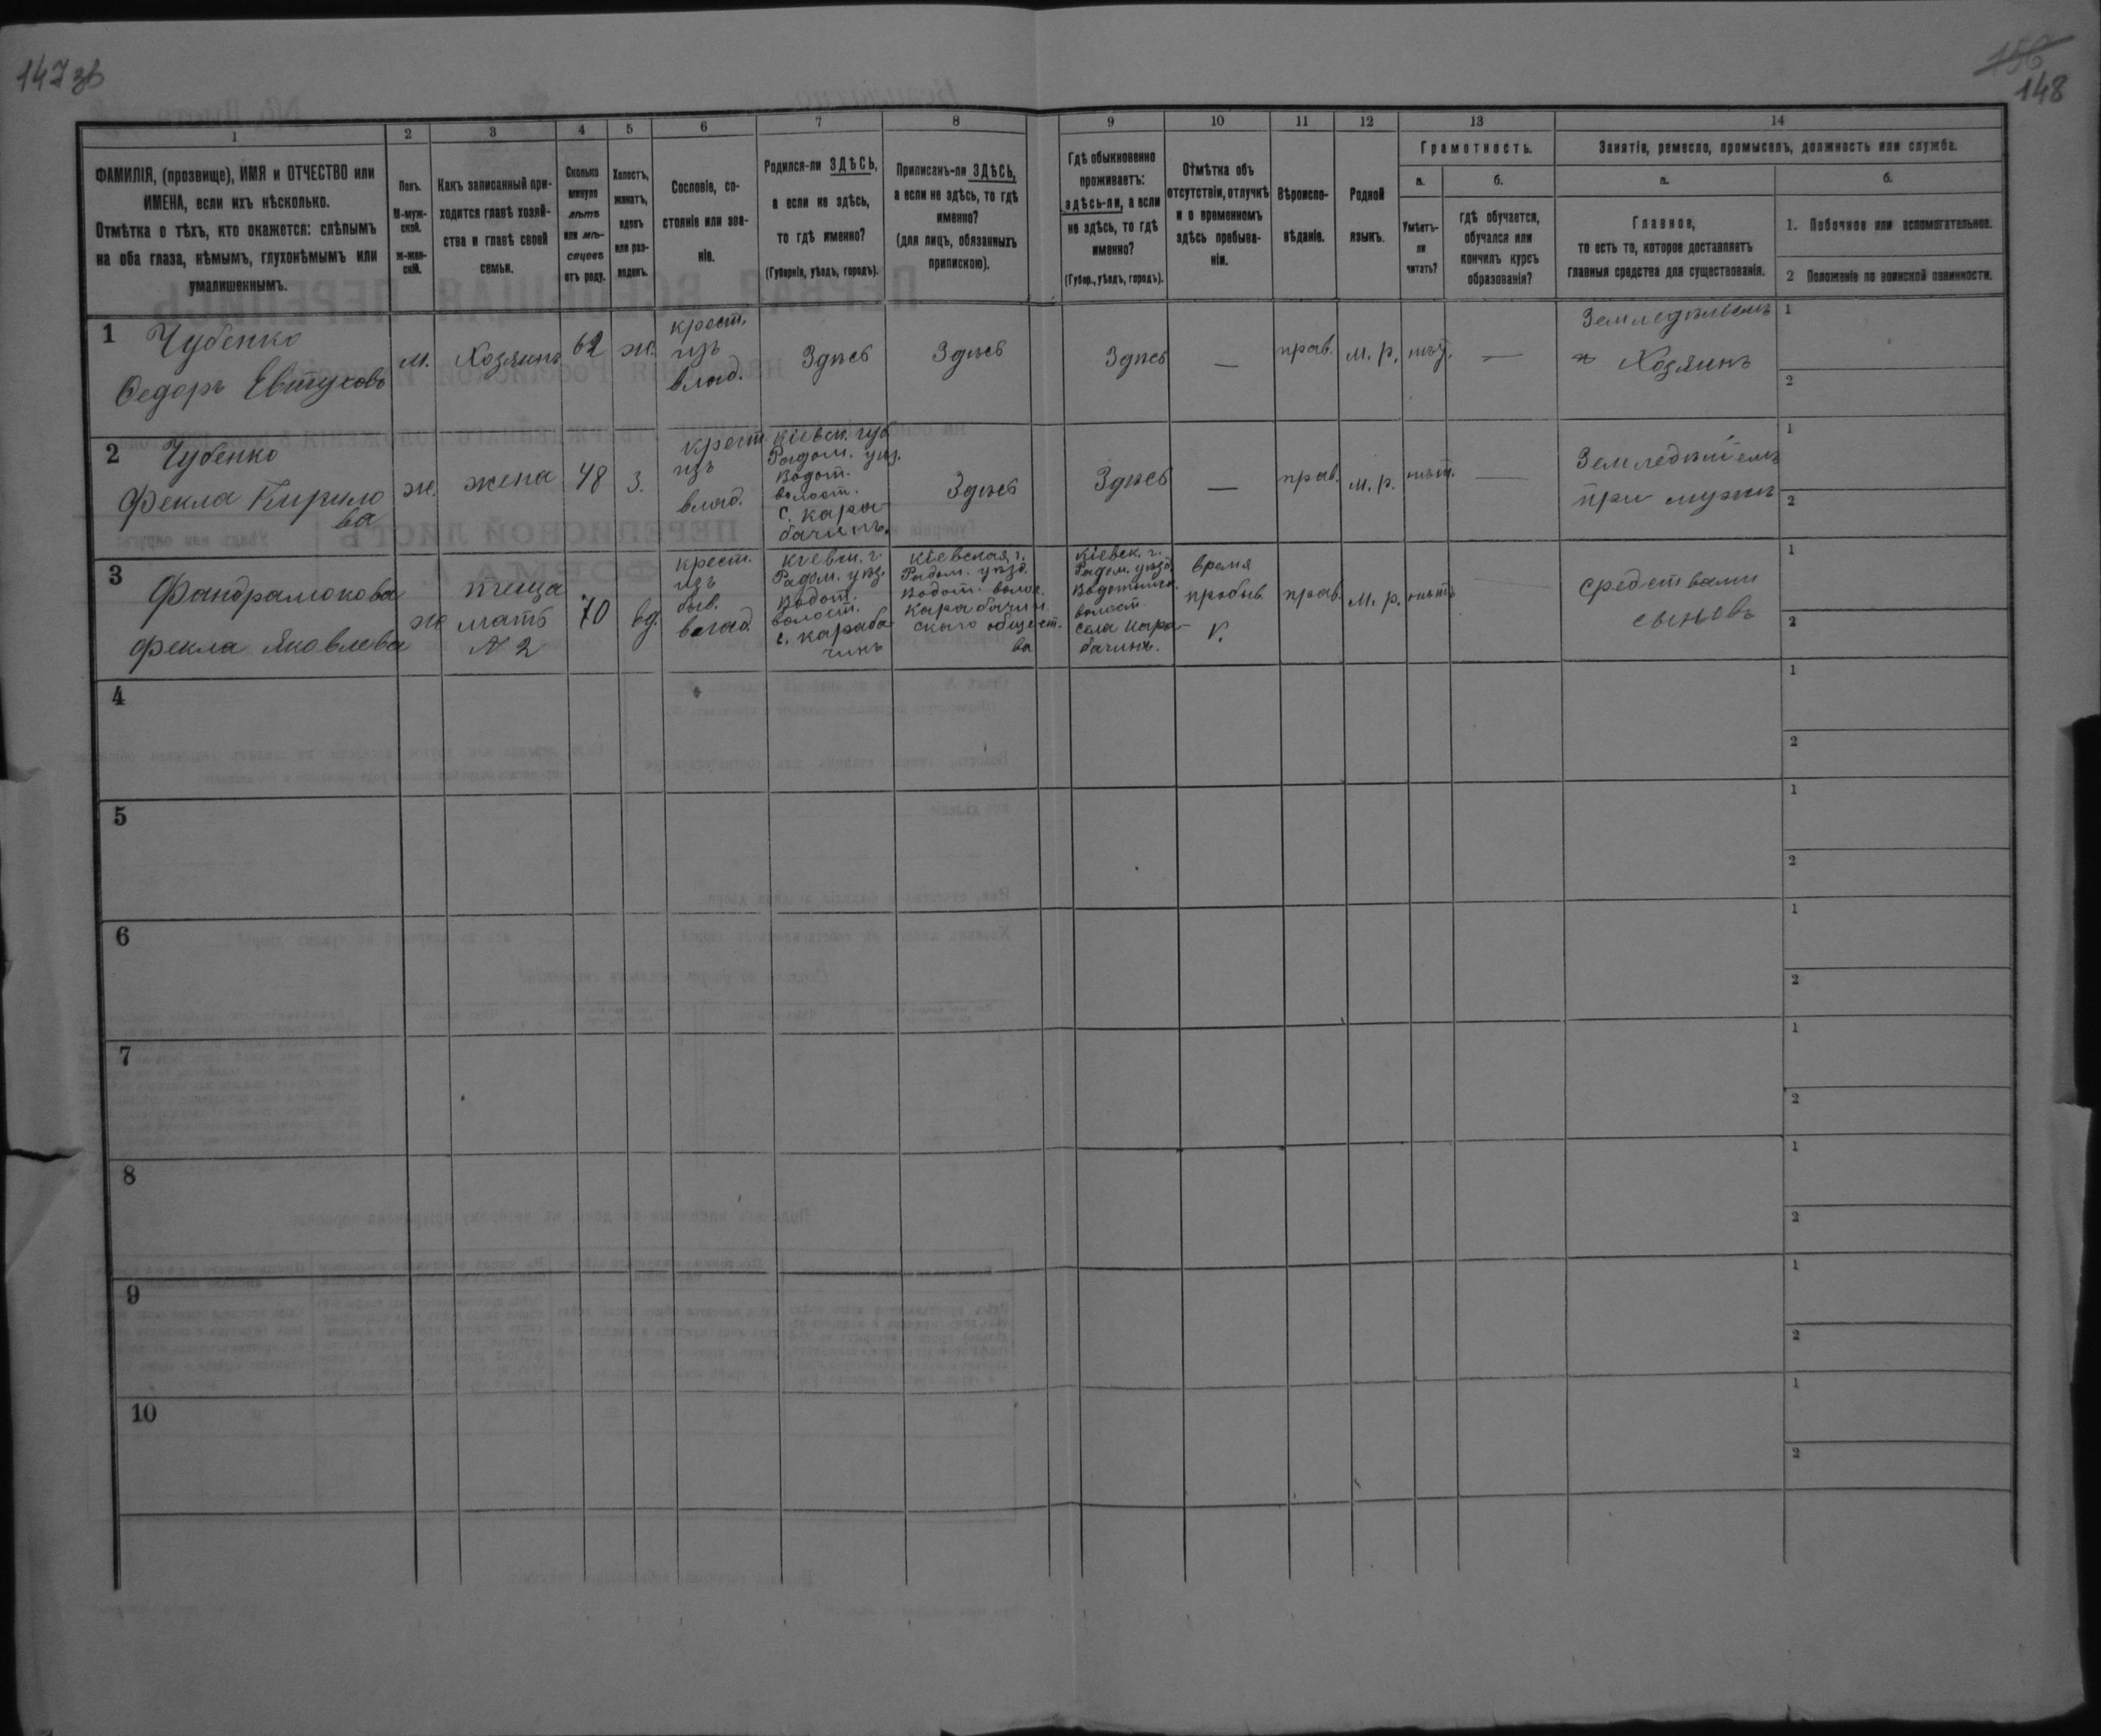 147 зв
156
148
1
2
3
4
5
6
7
8
9
10
11
12
13
14
ФАМИЛІЯ, (прозвище), ИМЯ и ОТЧЕСТВО или
ИМЕНА, если ихъ нѣсколько.
Отмѣтка о тѣхъ, кто окажется: слѣпымъ
на оба глаза, нѣмымъ, глухонѣмымъ или
умалишеннымъ.
Полъ.
М-муж-
ской.
ж-жен-
скій.
Какъ записанный при-
ходится главѣ хозяй-
ства и главѣ своей
семьи.
Сколько
минуло
лѣтъ
или мѣ-
сяцевъ
отъ роду.
Холостъ,
женатъ,
вдовъ
или раз-
веденъ.
Сословіе, со-
стояніе или зва-
ніе.
Родился-ли ЗДѢСЬ,
а если не здѣсь,
то гдѣ именно?
(Губернія, уѣздъ, городъ).
Приписанъ-ли ЗДѢСЬ,
а если не здѣсь, то гдѣ
именно?
(для лицъ, обязанныхъ
припискою).
Гдѣ обыкновенно
проживаетъ:
здѣсь-ли, а если
не здѣсь, то гдѣ
именно?
(Губер., уѣздъ, городъ).
Отмѣтка объ
отсутствіи, отлучкѣ
и о временномъ
здѣсь пребыва-
ніи.
Вѣроиспо-
вѣданіе.
Родной
языкъ.
Грамотность.
а.
Умѣетъ-
ли
читать?
б.
гдѣ обучается,
обучался или
кончилъ курсъ
образованія?
Занятіе, ремесло, промыселъ, должность или служба.
а.
Главное,
то есть то, которое доставляетъ
главныя средства для существованія.
б.
1. Побочное или вспомогательное.
2 Положеніе по воинской повинности.
1
Чубенко
Федоръ Евтуховъ
м.
Хозяинъ
62
ж.
крест.
изъ
влад.
Здѣсь
Здѣсь
Здѣсь
—
прав.
м. р.
нѣт.
—
Земледѣлемъ
Хозяинъ
1
2
2
Чубенко
Фекла Кирило
ва
ж.
жена
48
з.
крест.
изъ
влад.
Кіевск. губ
Радом. уѣз.
Водот.
волост.
с. Кара-
бачинъ.
Здѣсь
Здѣсь
—
прав.
м. р.
нѣт.
—
Земледѣлемъ
при мужѣ
1
2
3
Фандрамонова
Фекла Яковлева
ж
теща
мать
№ 2
70
вд.
крест.
изъ
быв.
влад.
Кіевск. г.
Радом. уѣз.
Водот.
волост.
с. караба-
чинъ
Кіевская г.
Радом. уѣзд.
Водот. волос.
Карабачин
скаго общест.
ва
Кіевск. г.
Радом. уѣзд.
волост.
села Кара-
бачинъ.
время
пребыв.
V.
прав.
м. р.
нѣтъ
—
средствами
сыновъ
1
2
4
1
2
5
1
2
6
1
2
7
1
2
8
1
2
9
1
2
10
1
2